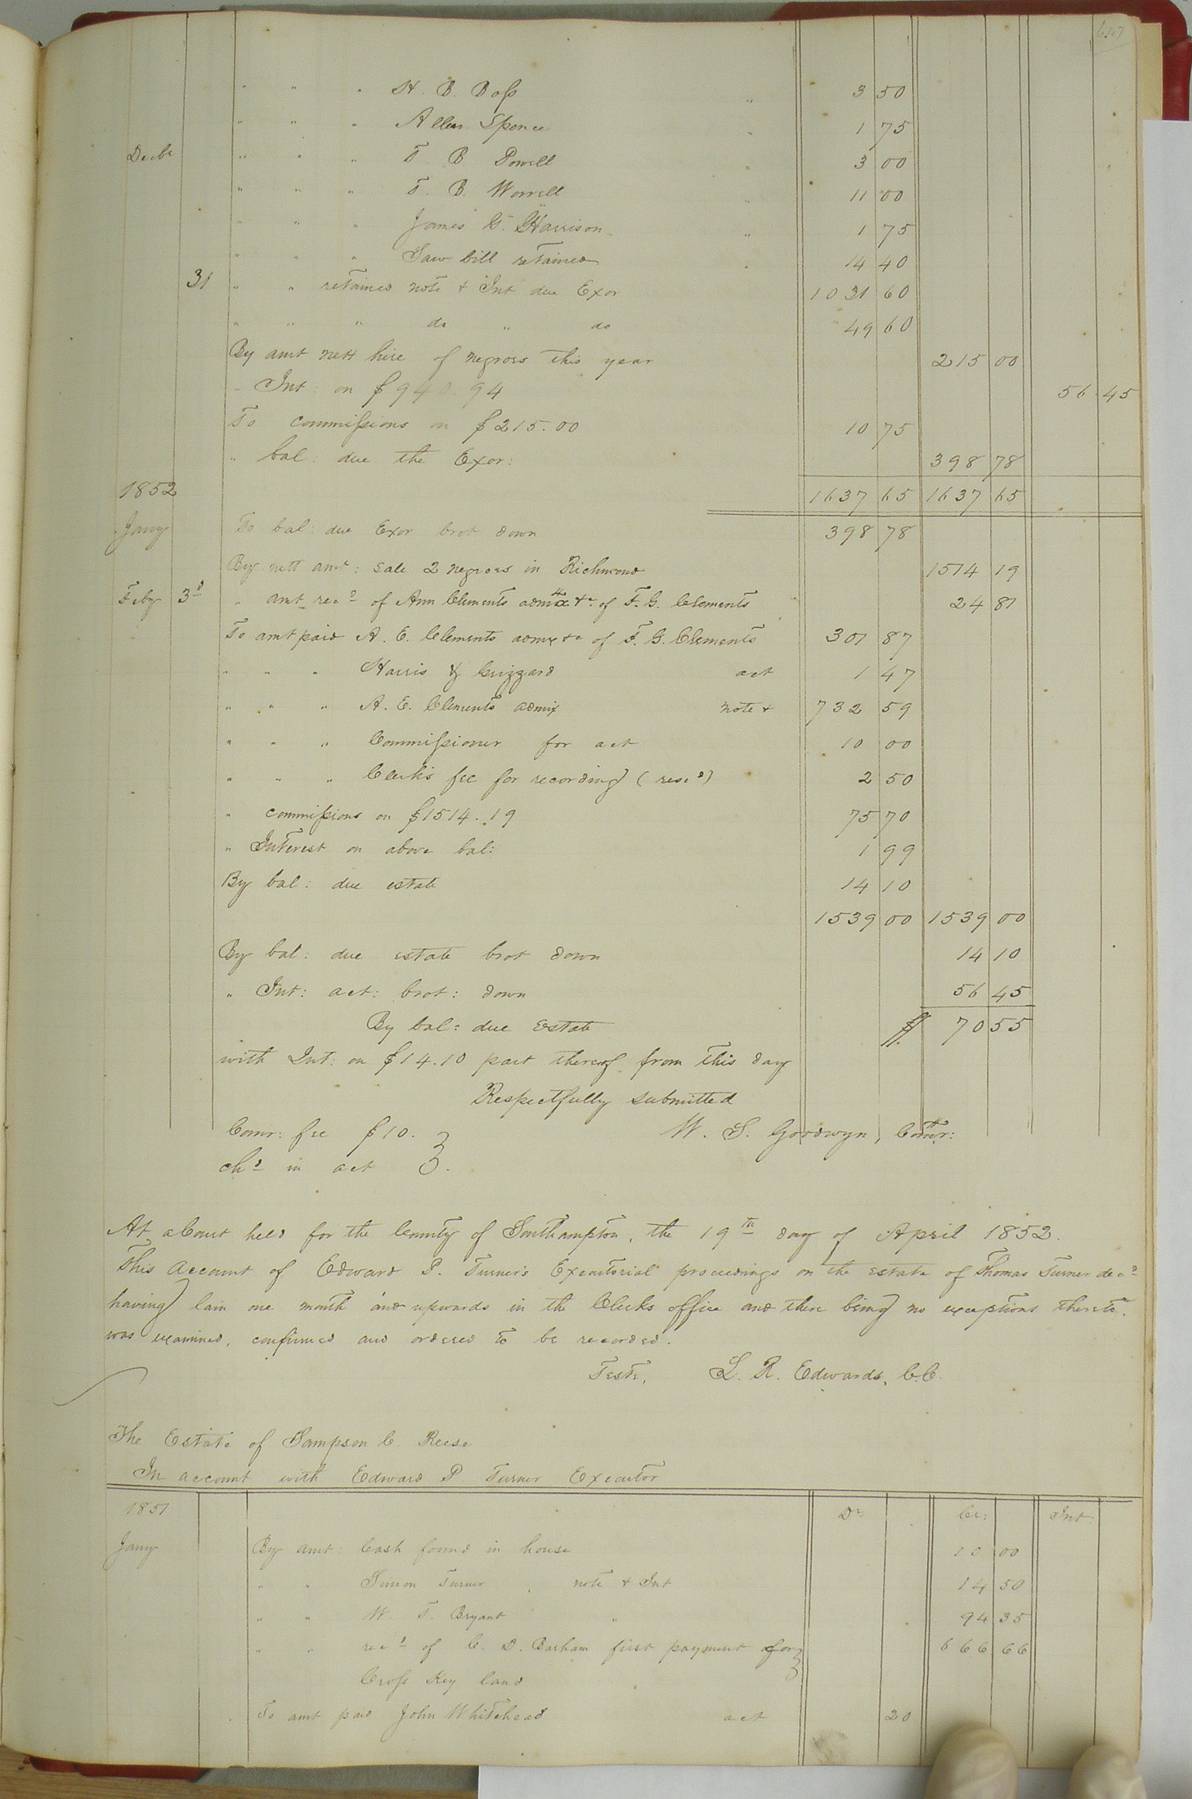 " " " H. B. Boss " 3 50
" " " Allen Spence " 1 75
Decbr " " " T B Powell " 3 00
" " " T. B. Worrell " 11 00
" " " James G. Harrison " 1 75
" " " Saw bill retained " 14 40
31 " " retained note & Int due Exor 1031 60
" " " do " do 49 60
By amt nett hire of negroes this year 215 00
" Int: on $940.94 56 45
To commissions on $215.00 10 75
" bal: due the Exor: 398 78
1852 1637 65 1637 65
Jany To bal: due Exor brot down 398 78
By nett amt: sale 2 negroes in Richmond 1514 19
Feby 3d " amt recd of Ann Clements admx &c of F. G. Clements 24 81
To amt paid A. E. Clements admx &c of F. G. Clements 301 87
" " " Harris & Grizzard act 1 47
" " " A. E. Clements admx note & 732 59
" " " Commissioner for act 10 00
" " " Clerk's fee for recording (resd) 2 50
" commissions on $1514.19 75 70
" Interest on above bal: 1 99
By bal: due estate 14 10
1539 00 1539 00
By bal: due estate brot down 14 10
" Int: act: brot: down 56 45
By bal: due Estate $ 70 55
with Int: on $14.10 part thereof from this day
Respectfully submitted
Comr: fee $10. W. S. Goodwyn, Comr:
chd in act
At a Court held for the County of Southampton, the 19th day of April 1852.
This account of Edward P. Turner's Executorial proceedings on the estate of Thomas Turner decd
having lain one month and upwards in the Clerks office and there being no exceptions thereto,
was examined, confirmed and ordered to be recorded.
Teste, L. R. Edwards, C.C.
The Estate of Sampson C. Reese
In account with Edward P. Turner Executor
1851 Dr Cr: Int:
Jany By amt: Cash found in house 10 00
" " Simon Turner , note & Int 14 50
" " W. T. Bryant " 94 35
" " recd of C. D. Barham first payment for 666 66
Cross Key land
To amt paid John Whitehead act 20